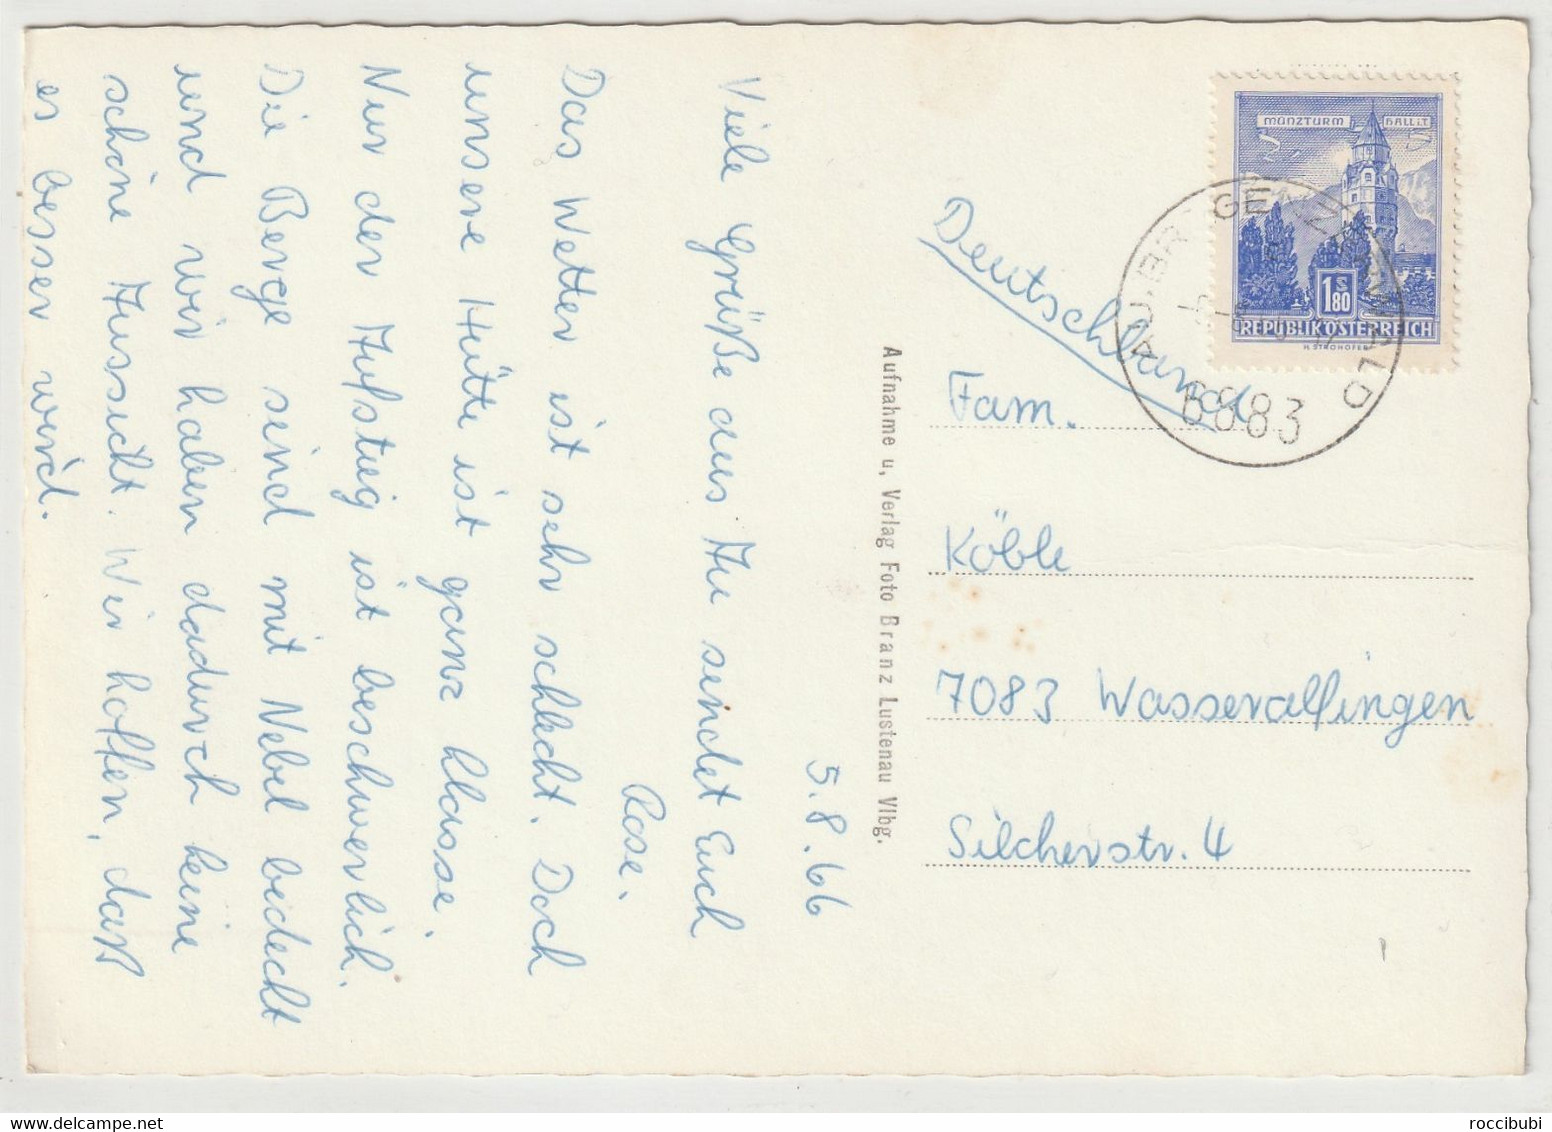 5.8.66
Viele Grüße aus Au sendet Euch
Rose.
Das Wetter ist sehr schlecht. Doch
unsere Hütte ist ganz klasse.
Nur der Aufstieg ist beschwerlich.
Die Berge sind mit Nebel bedeckt
und wir haben dadurch keine
schöne Aussicht. Wir hoffen, daß
es besser wird.
Aufnahme u. Verlag Foto Branz Lustenau Vlbg.
MÜNZTURM HALL i.T.
S
1.80
REPUBLIK ÖSTERREICH
H. STROHOFER
AU, BREGENZERWALD
6883
Deutschland
Fam.
Köble
7083 Wasseralfingen
Silcherstr. 4
roccibubi